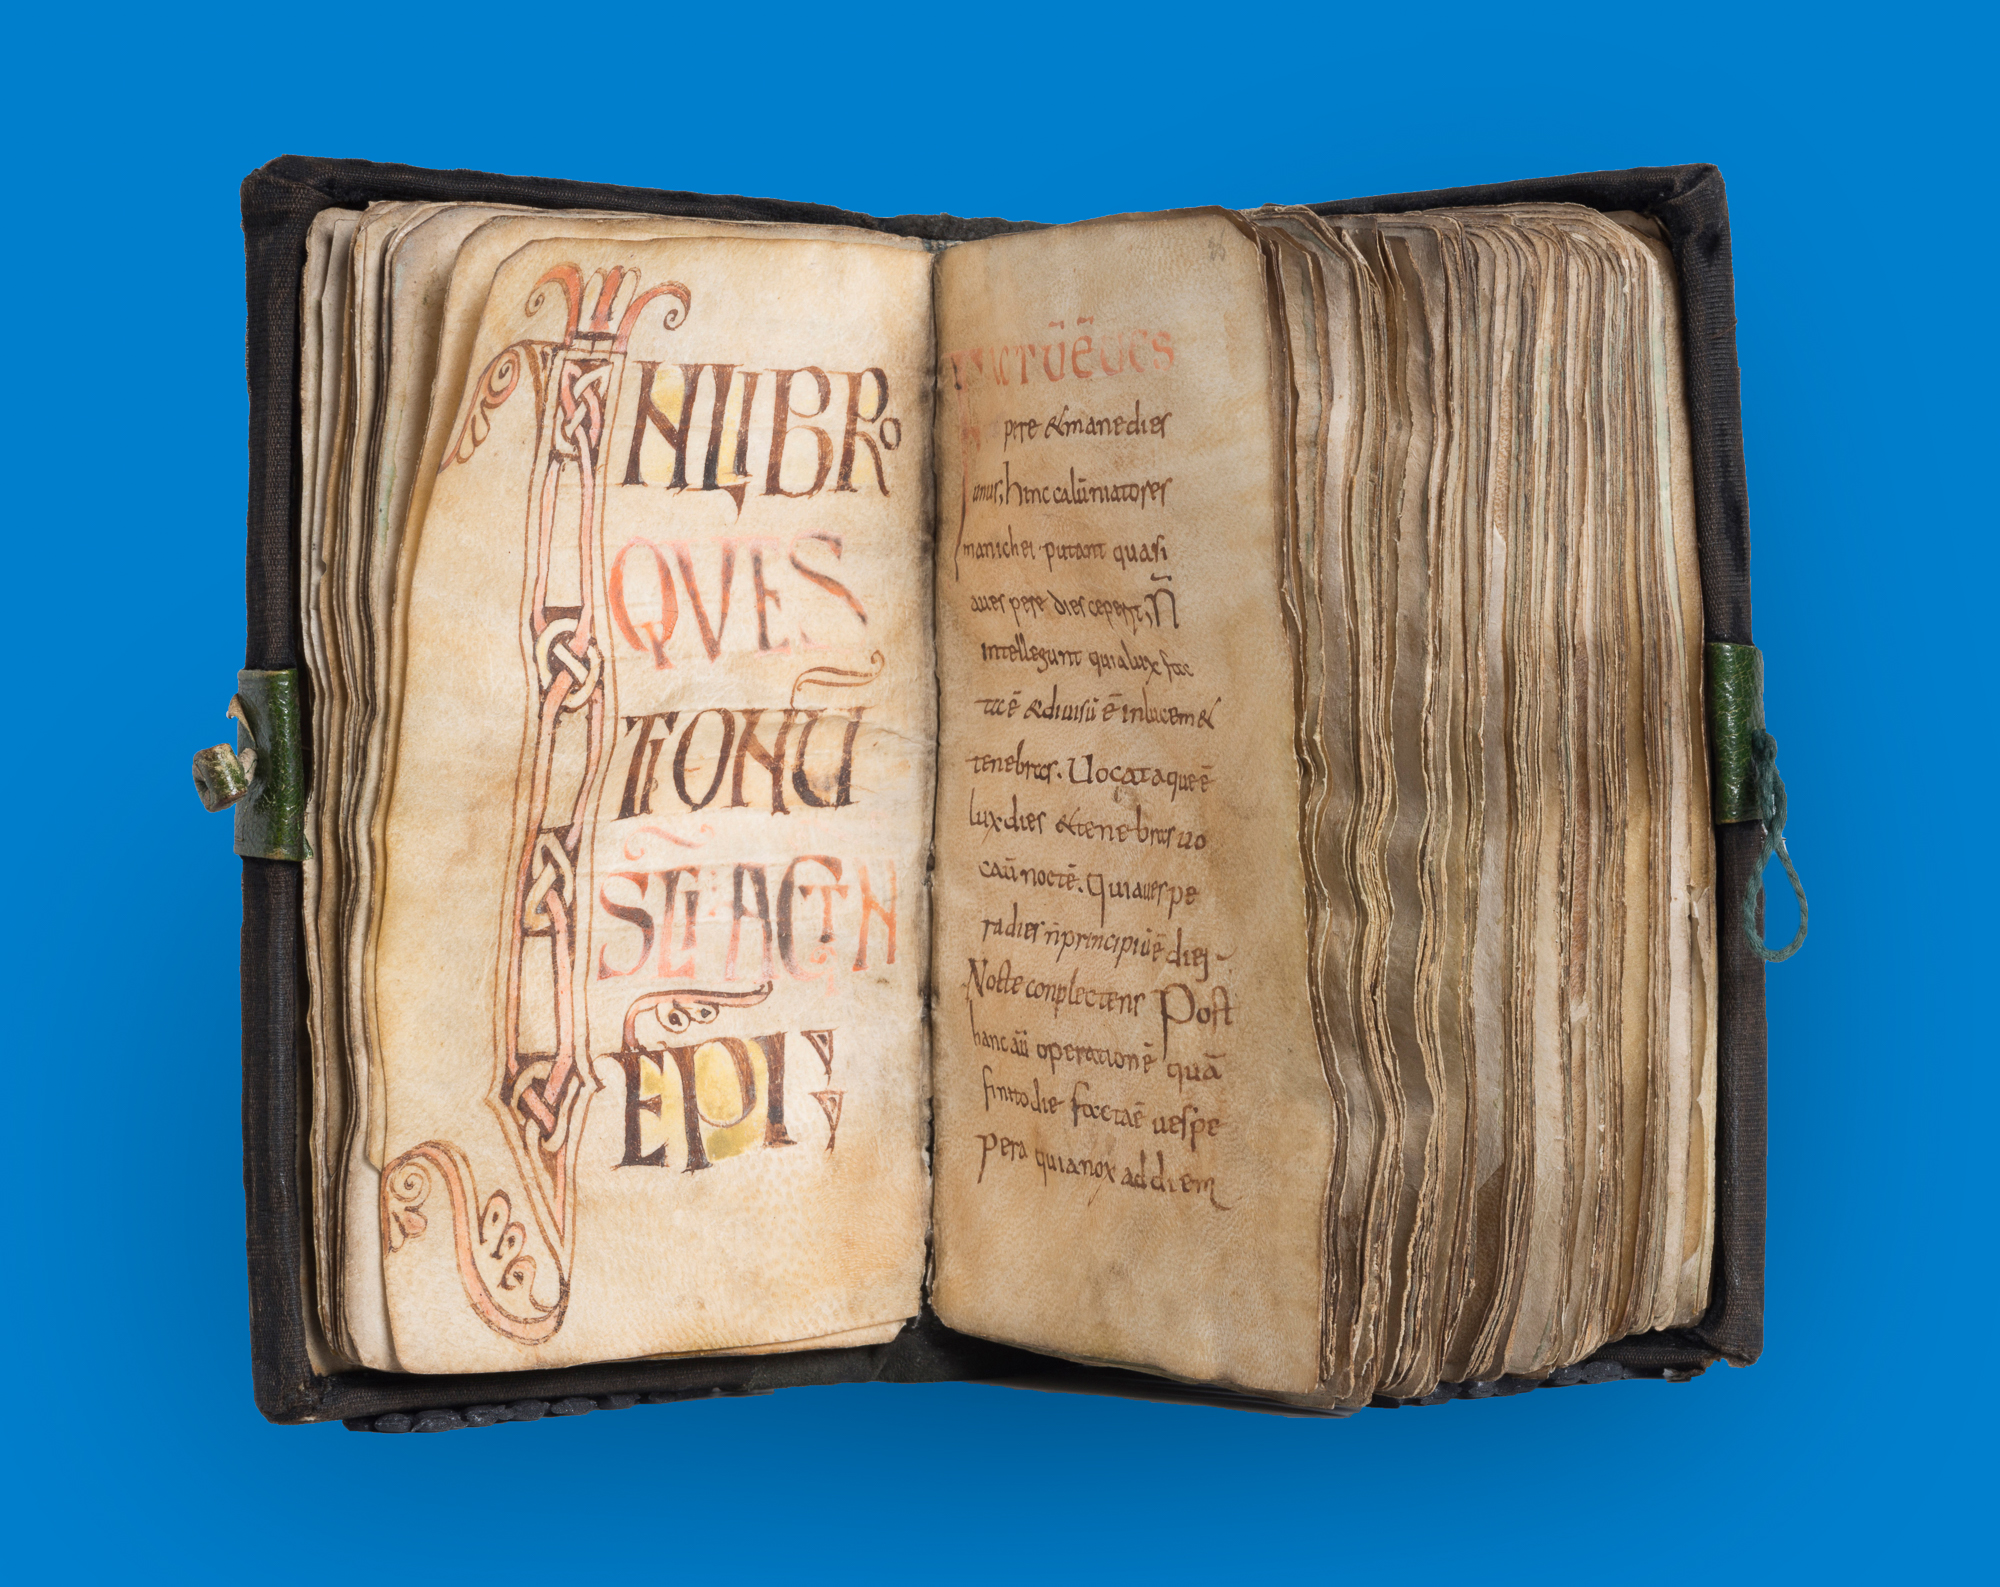 IN LIBRO
QUES
TIONŪ
SC̄I AGTN
EPI;
ET FACTŪ Ē UES
pere & mane dies
unus, hinc calūniatores
manichei putant quasi
a uespere dies ceperit, N̄
intellegunt quia lux fac
ta ē & diuisū ē in lucem &
tenebras. Uocataque ē
lux dies & tenebras uo
caū noctē. Quia uespe
ra dies n̄ principiū ē diei
Nocte conplectens Post
hanc aū operationē quā
finito die facta ē uespe
pera quia nox ad diem